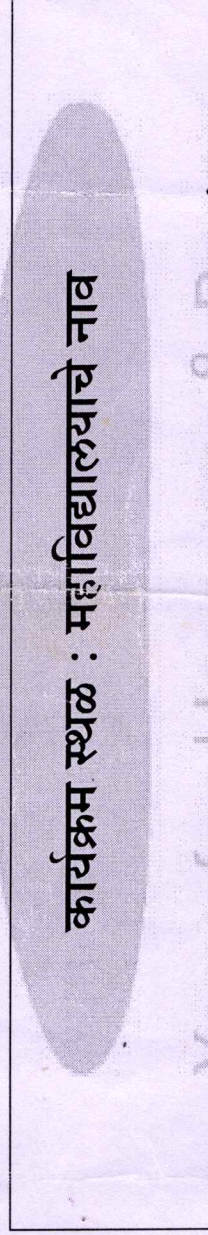 कार्यक्रम स्थळ : महाविद्यालयाचे नाव